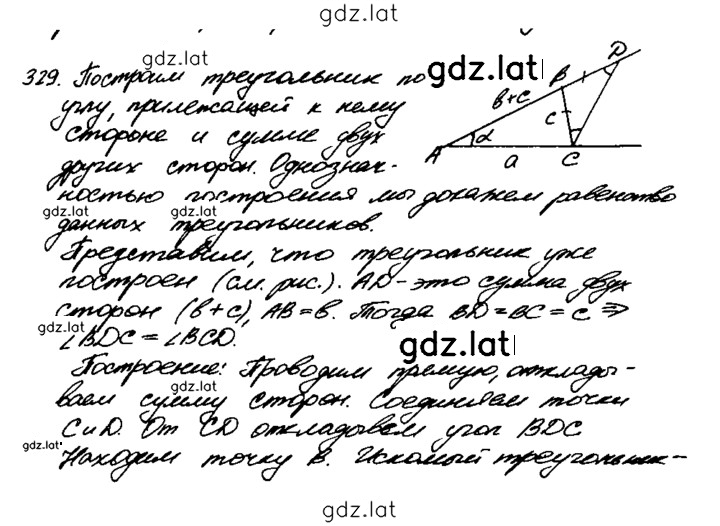 gdz.lat
329. Построим треугольник по
углу, прилежащей к нему
стороне и сумме двух
других сторон. Однознач-
ностью построения мы докажем равенство
данных треугольников.
Представим, что треугольник уже
построен (см. рис.). AD - это сумма двух
сторон (b+c), AB = b. Тогда BD = BC = c ⇒
∠BDC = ∠BCD.
Построение: Проводим прямую, откладыва-
ваем сумму сторон. Соединяем точки
C и D. От CD откладоваем угол BDC
Находим точку B. Искомый треугольник -
A
B
C
D
b+c
c
a
α
gdz.lat
gdz.lat
gdz.lat
gdz.lat
gdz.lat
gdz.lat
gdz.lat
gdz.lat
gdz.lat
gdz.lat